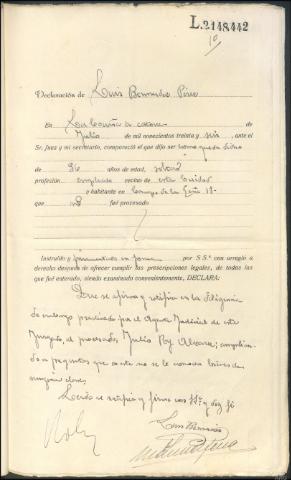 L.2148,442
Declaración de Luis
En La Coruña a catorce de
Julio de mil novecientos treinta y seis, ante el
Sr. Juez y mi secretario, compareció el que dijo ser
de 36 años de edad, soltero
profesión empleado vecino de esta Ciudad
y habitante en Campo de la Leña 18-
que no fué procesado
Instruído y juramentado en forma por S S.ª con arreglo a
derecho después de ofrecer cumplir las prescripciones legales, de todas las
que fué enterado, siendo examinado convenientemente, DECLARA:
Que se afirma y ratifica en la diligencia
de embargo practicada por el Agente Judicial de este
Juzgado, al procesado, Julio Rey Alvarez;
a preguntas que a este no se le conocen bienes de
ninguna clase.
Leída se ratifica y firma con SSª y doy fé